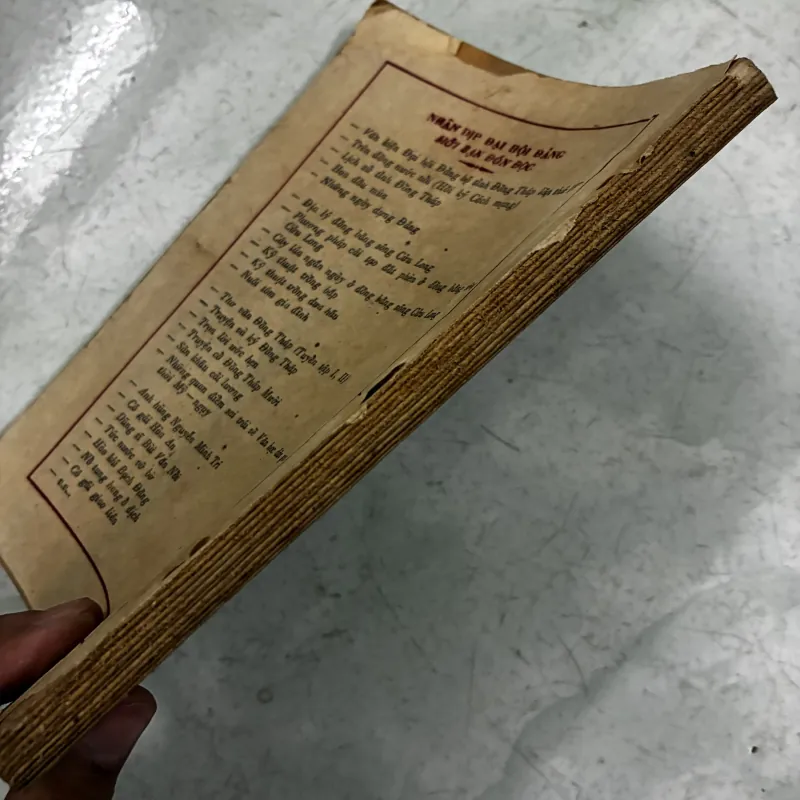 NHÂN DỊP ĐẠI HỘI ĐẢNG
MỜI BẠN ĐÓN ĐỌC
— Văn kiện Đại hội Đảng bộ tỉnh Đồng Tháp lần thứ
— Trên đồng nước nổi (Hồi ký Cách mạng)
— Lịch sử tỉnh Đồng Tháp
— Hoa đầu mùa
— Những ngày dựng Đảng
— Địa lý đồng bằng sông Cửu Long
— Phương pháp cải tạo đất phèn ở đồng bằng
Cửu Long
— Cây lúa ngắn ngày ở đồng bằng sông Cửu Long
— Kỹ thuật trồng bắp
— Kỹ thuật trồng dưa hấu
— Nuôi tôm gia đình
— Thơ văn Đồng Tháp (Tuyển tập I, II)
— Truyện và ký Đồng Tháp
— Trọn lời ước hẹn
— Truyện cổ Đồng Tháp Mười
— Sân khấu cải lương
— Những quan điểm sai trái về Văn học
thời Mỹ — ngụy
— Anh hùng Nguyễn Minh Trí
— Cô gái Hòa An
— Dòng di Bùi Văn Nh
— Tức nước vỡ bờ
— Hào khí Bạch Đằng
— Nữ tung hoành
— Cô gái giao liên
— v.v...